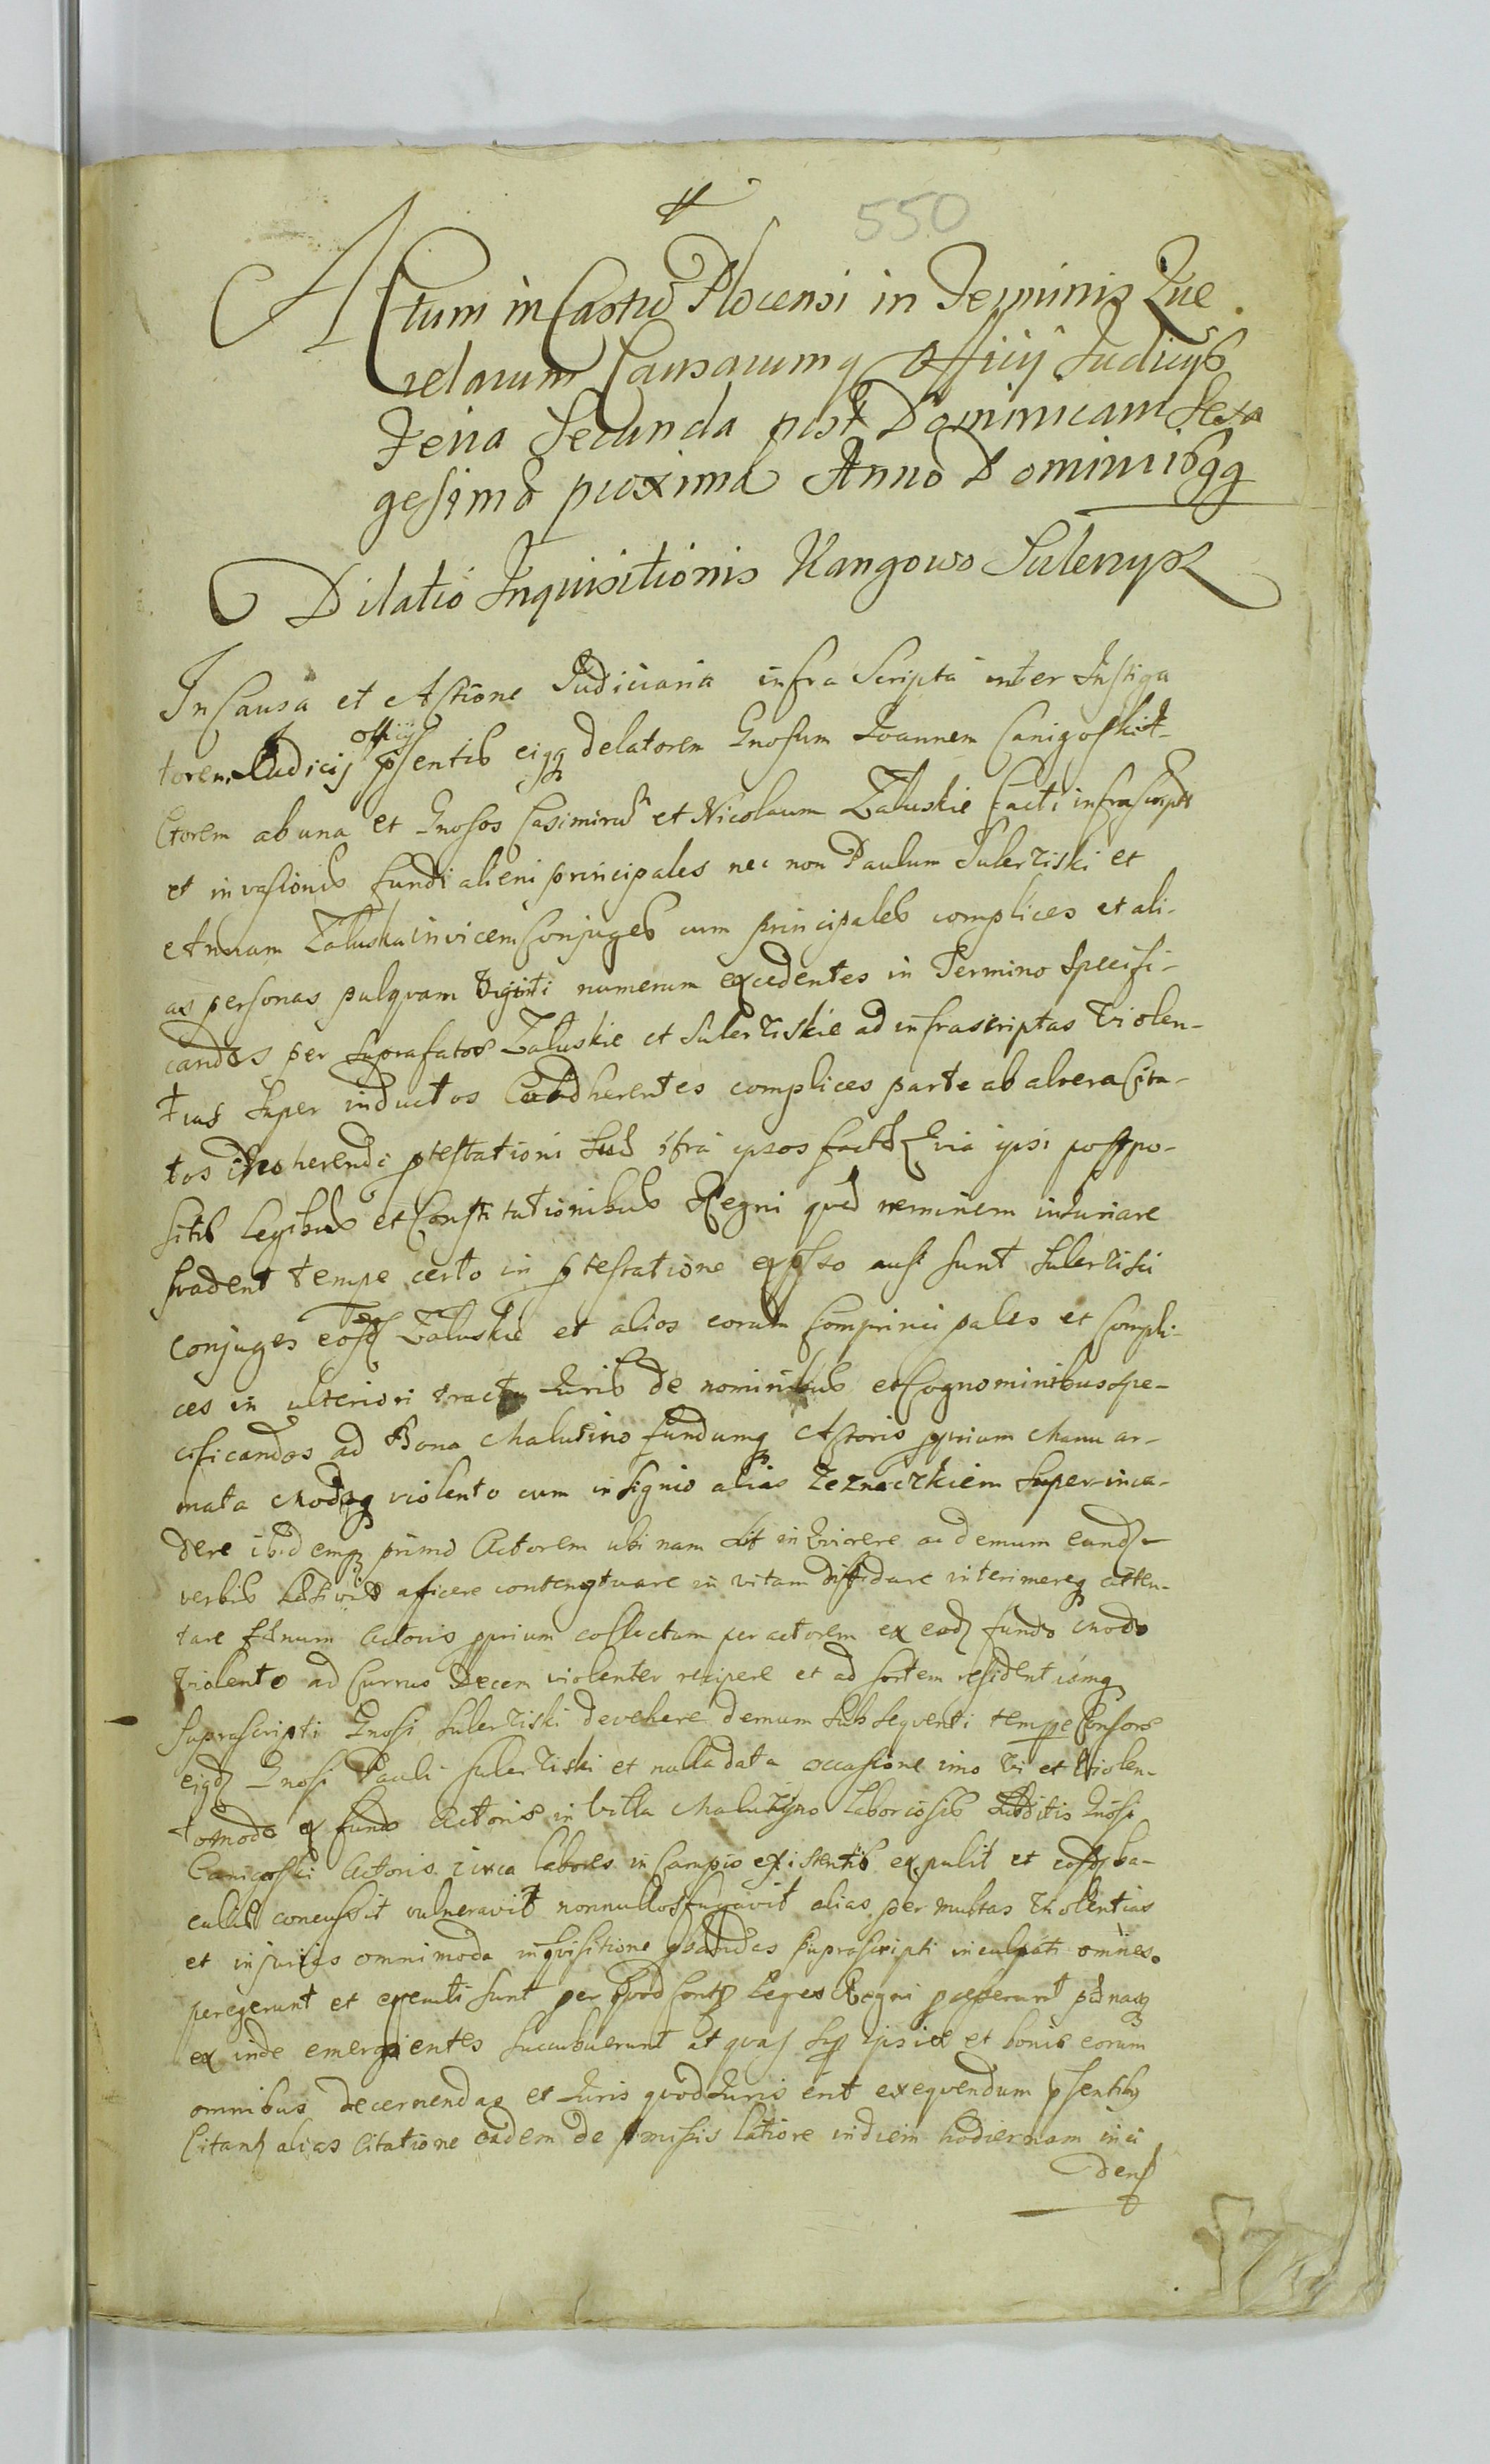 550
Actum in Castro Plocensi in Terminis Que
relarum Causarumq Officij Iudicijs
Feria Secunda post Dominicam Sexa
gesima proxima Anno Domini 1699
Dilatio Inquisitionis Kangowo Sulerzysz
In Causa et Actione Iudiciaria infra Scripta inter Instiga
torem Iudicij officij psentis eiqq delatorem Gnosum Ioannem Canigoski A-
ctorem ab una et Gnosos Casimirum et Nicolaum Zaluskie facti infrascripti
et invasionis fundi alieni principales nec non Paulum Sulerziski et
Annam Zaluska invicem Conjuges cum principales complices et ali-
as personas pulqvam viginti numerum excedentes in Termino Specifi-
candos per Suprafatos Zaluskie et Sulerziskie ad infrascriptas violen-
tias Super inductos Coadherentes complices parte ab altera Cita-
tos inherendo ptestationi Suae ctra ipsos factae Quia ipsi postpo-
sitis legibus et Constitutionibus Regni quae neminem iniuriare
svadent tempe certo in ptestatione expsso ausi sunt Sulerzisci
conjuges eosd Zaluskie et alios eorum Comprincipales et Compli-
ces in ulteriori tractu Iuris de nominibus et Cognominibus spe-
cificandos ad Bona Maluzino fundumq Actoris pprium Manu ar-
mata Modoq violento cum insignio alias Zeznaczkiem Super inva-
dere ibidemq primo Actorem ubi nam sit inqvirere ac demum eund
verbis afficere contemptuare in vitam diffidare interimereq atten-
tare faenum Actoris pprium collectum per actorem ex eod fundo Modo
violento ad Currus Decem violenter recipere et ad sortem residentiamq
Suprascripti Gnosi Sulerziski devehere demum Subseqventi tempe Consors
eigd Gnosi Pauli Sulerziski et nulla data occasione imo vi et violen-
to Modo ex fundo Actoris in Villa Maluzyno laboriosis Subditis Gnosi
Canigoski Actoris circa labores in Campis existentib expulit et eosd ba-
culis concussit vulneravit nonnullos fugavit alias per multas violentias
et injurias omnimoda inqvisitione pbandas suprascripti inculpati omnes
peregerunt et executi sunt per quod Contra Leges Regni pcesserunt paenasq
ex inde emergentes succubuerunt at qvas sup ipsis et bonis eorum
omnibus decernendas et Iuris quod Iuris erit exeqvendum psentibq
Citant alias Citatione eadem de pmissis latiore in diem hodiernam inci
dens